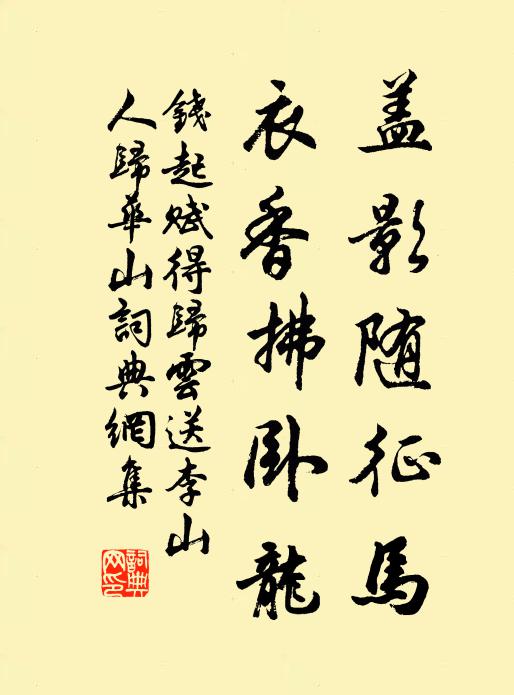 盖影随征馬
衣香拂卧龍
錢起赋得歸雲送李山
人歸華山詞典網集
詞典網印